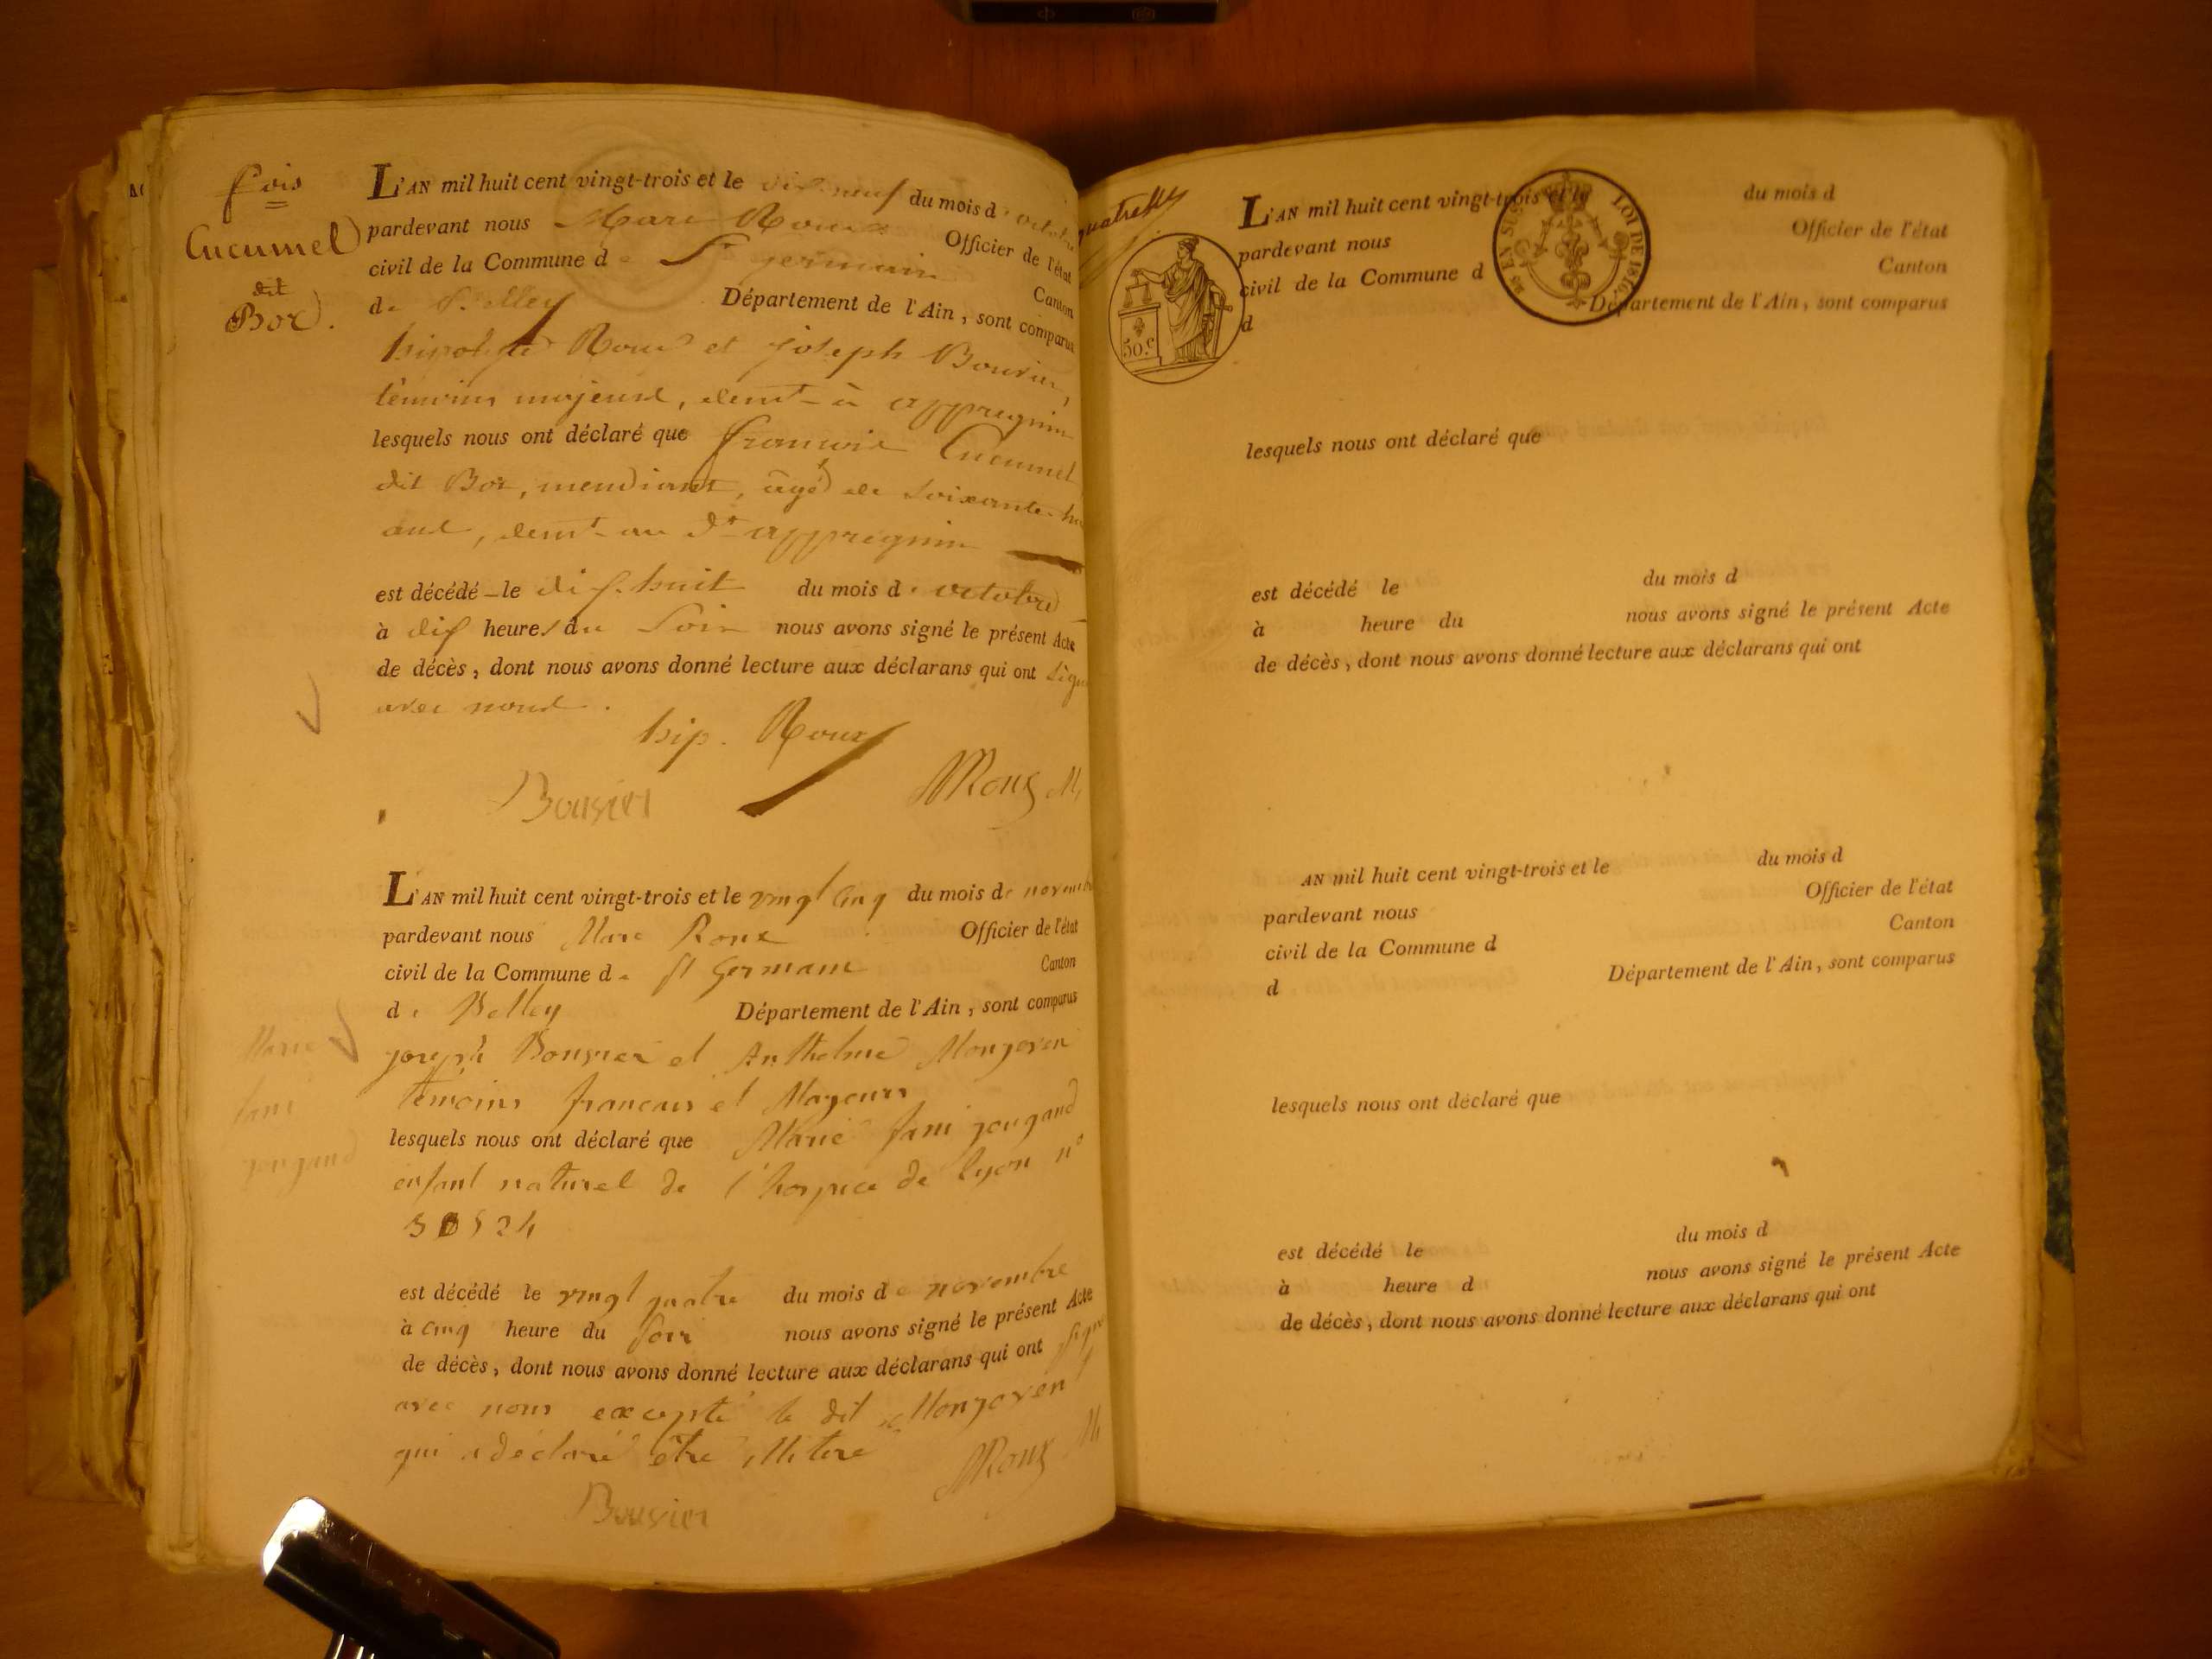 fois
Cucumel
dit
Bor.
L'AN mil huit cent vingt-trois et le dix neuf du mois d'octobre
pardevant nous Marc Roux Officier de l'état
civil de la Commune de St germain Canton
de Belley Département de l'Ain, sont comparus
hipolyte Roux et joseph Bouvier,
témoins majeurs, demt à appregnin
lesquels nous ont déclaré que francois Cucumel
dit Bor, mendiant, âgé de soixante
ans, demt au dt appregnin
est décédé le dix huit du mois d'octobre
à dix heures du soir nous avons signé le présent Acte
de décès, dont nous avons donné lecture aux déclarans qui ont signé
avec nous.
hip. Roux
Bouvier
MRoux M
L'AN mil huit cent vingt-trois et le vingt cinq du mois de novembre
pardevant nous Marc Roux Officier de l'état
civil de la Commune de St Germain Canton
de Belley Département de l'Ain, sont comparus
joseph Bouvier et Anthelme Mongoven
témoins francais et Majeurs
Marie
fani
gougand
lesquels nous ont déclaré que Marie fani gougand
enfant naturel de l'hospice de lyon n°
est décédé le vingt quatre du mois de novembre
à cinq heure du soir nous avons signé le présent Acte
de décès, dont nous avons donné lecture aux déclarans qui ont signé
avec nous excepté le dit Mongoven
qui a déclaré être illitere
MRoux M
Bouvier
50.c
LOI DE 1816
L'AN mil huit cent vingt-trois et le du mois d
pardevant nous Officier de l'état
civil de la Commune d Canton
d Département de l'Ain, sont comparus
lesquels nous ont déclaré que
est décédé le du mois d
à heure du nous avons signé le présent Acte
de décès, dont nous avons donné lecture aux déclarans qui ont
AN mil huit cent vingt-trois et le du mois d
pardevant nous Officier de l'état
civil de la Commune d Canton
d Département de l'Ain, sont comparus
lesquels nous ont déclaré que
est décédé le du mois d
à heure d nous avons signé le présent Acte
de décès, dont nous avons donné lecture aux déclarans qui ont